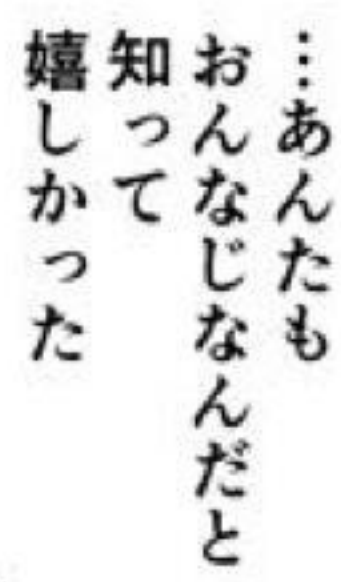 …あんたも
おんなじなんだと
知って
嬉しかった